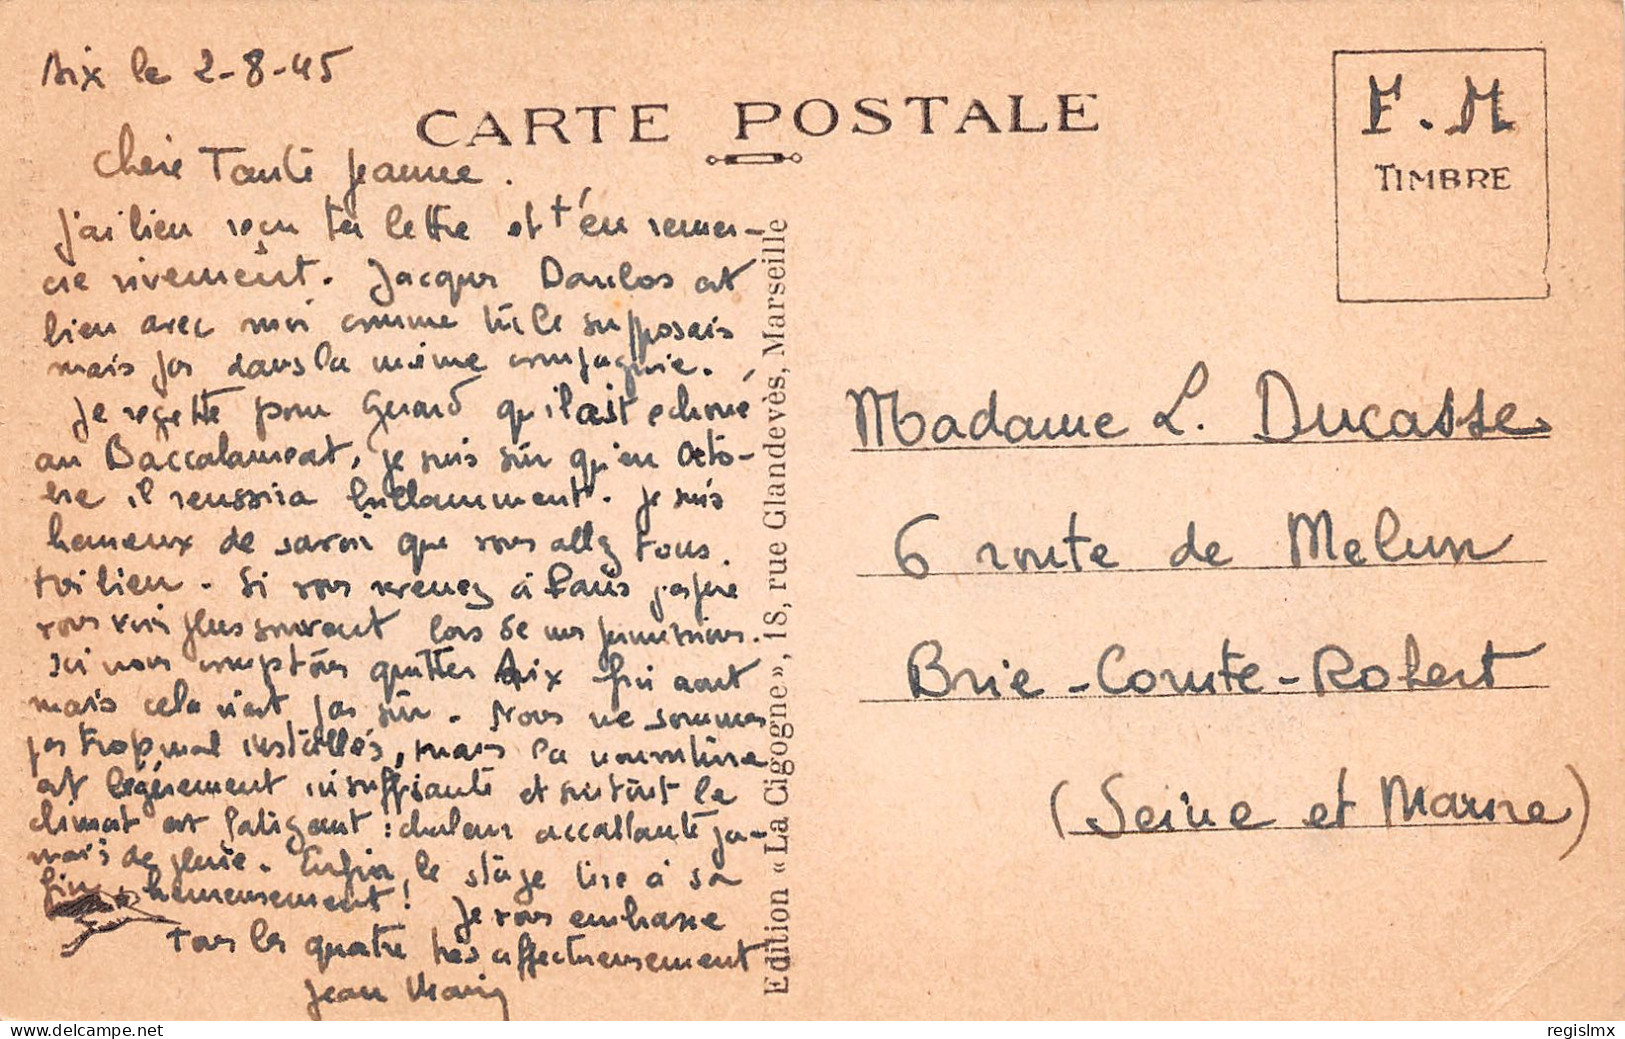 Aix le 2-8-45
CARTE POSTALE
F.M
TIMBRE
Chère Tante Jeanne.
J'ai bien reçu ta lettre et t'en remer-
cie vivement. Jacques Daulos est
bien avec moi comme tu le supposais
mais pas dans la même compagnie.
Je regrette pour Gérard qu'il ait échoué
au Baccalauréat, je suis sûr qu'en Octo-
bre il reussira brillamment. Je suis
heureux de savoir que vous allez tous
très bien. Si vous venez à Paris j'espère
vous voir plus souvent lors de mes permissions.
Ici nous comptons quitter Aix fin août
mais cela n'est pas sûr. Nous ne sommes
pas trop mal installés, mais la nourriture
est légèrement insuffisante et surtout le
climat est fatigant : chaleur accablante ja-
mais de pluie. Enfin le stage tire à sa
fin heureusement! Je vous embrasse
tous les quatre très affectueusement
Jean Marie
Edition « La Cigogne », 18, rue Glandevès, Marseille
Madame L. Ducasse
6 route de Melun
Brie-Comte-Robert
(Seine et Marne)
delcampe.net
regislmx